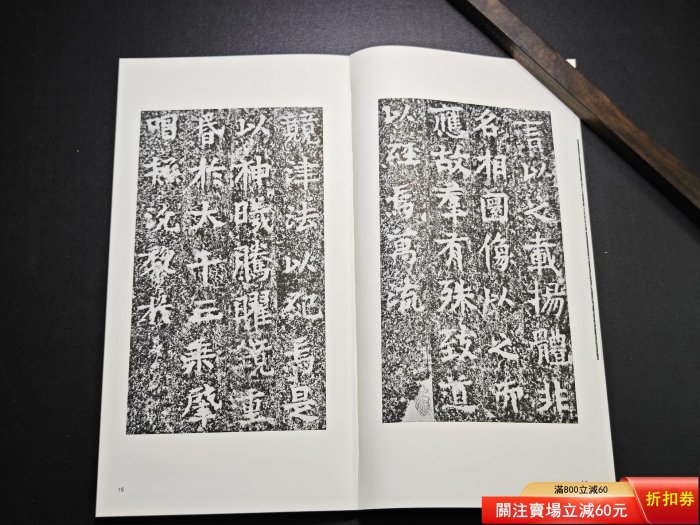 言以之載揚體非
名相圖像以之而
應故羣有殊致道
以經焉萬流
競津法以紀焉是
以神曦騰曜重
昏於大千三乘肇
唱拯沈黎於
15
滿800立減60
關注賣場立減60元
折扣券